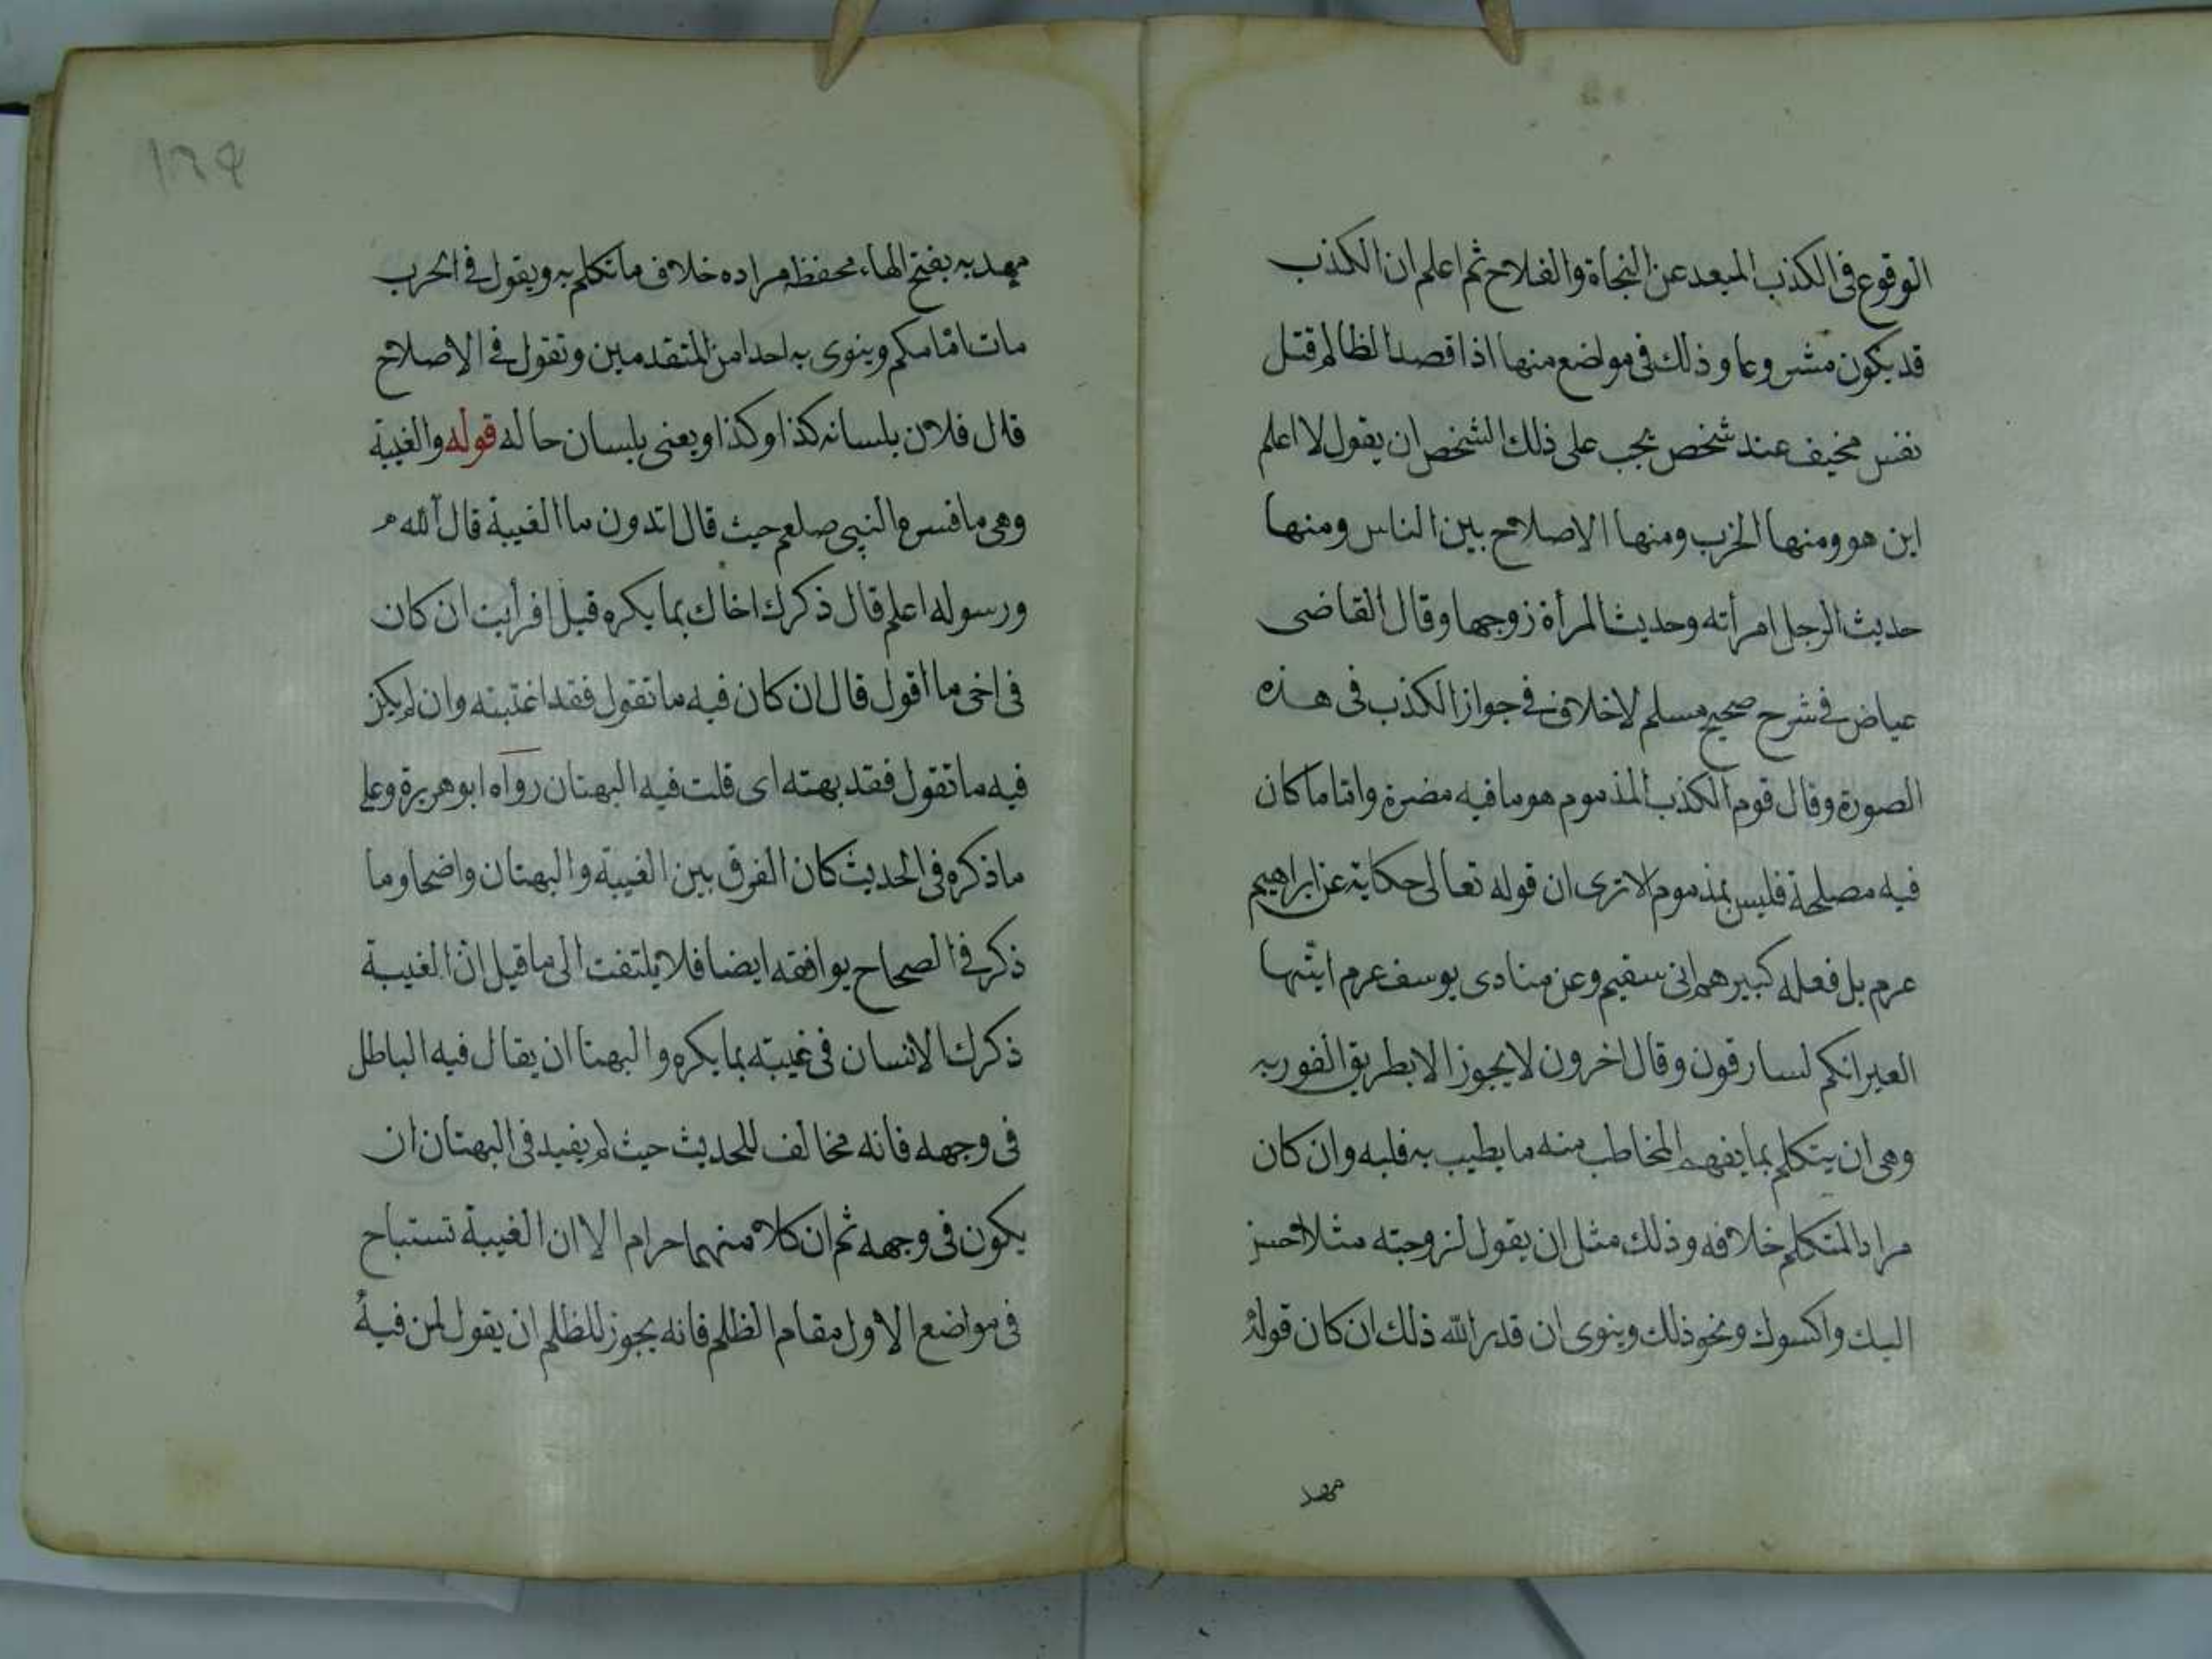 الوقوع فى الكذب المبعد عن النجاة والفلاح ثم اعلم ان الكذب
قد يكون مشروعا وذلك فى مواضع منها اذا قصد الظالم قتل
نفس مخيف عند شخص يجب على ذلك الشخص ان يقول لا اعلم
اين هو ومنها الحرب ومنها الاصلاح بين الناس ومنها
حديث الرجل امرأته وحديث المرأة زوجها وقال القاضى
عياض فى شرح صحيح مسلم لاخلاف فى جواز الكذب فى هذه
الصورة وقال قوم الكذب المذموم هو ما فيه مضرة واما ما كان
فيه مصلحة فليس بمذموم الا ترى ان قوله تعالى حكاية عن ابراهيم
عرم بل فعله كبيرهم انى سقيم وعن منادى يوسف عرم ايتها
العير انكم لسارقون وقال اخرون لا يجوز الا بطريق
وهى ان يتكلم بما يفهم المخاطب منه ما يطيب به قلبه وان كان
مراد المتكلم خلافه وذلك مثل ان يقول لزوجته مثلا احسن
اليك واكسوك ونحو ذلك وينوى ان قدر الله ذلك ان كان قوله
مهد
١٦٩
مهد به بفتح الهاء محفظ مراده خلاف ما تكلم به ويقول فى الحرب
مات امامكم وينوى به احدا من المتقدمين وتقول فى الاصلاح
قال فلان بلسانه كذا وكذا ويعنى بلسان حاله قوله والغيبة
وهى ما فسره النبى صلعم حيث قال اتدون ما الغيبة قال الله
ورسوله اعلم قال ذكرك اخاك بما يكره قيل افرأيت ان كان
فى اخى ما اقول قال ان كان فيه ما تقول فقد اغتبته وان لم يكن
فيه ما تقول فقد بهته اى قلت فيه البهتان رواه ابو هريرة وعلى
ما ذكره فى الحديث كان الفرق بين الغيبة والبهتان واضحا وما
ذكر فى الصحاح يوافقه ايضا فلا يلتفت الى ما قيل ان الغيبة
ذكرك الانسان فى غيبته بما يكره والبهتا ان يقال فيه الباطل
فى وجهه فانه مخالف للحديث حيث لم يفيد فى البهتان ان
يكون فى وجهه ثم ان كلا منهما حرام الا ان الغيبة تستباح
فى مواضع الاول مقام الظلم فانه يجوز للظلم ان يقول لمن فيه